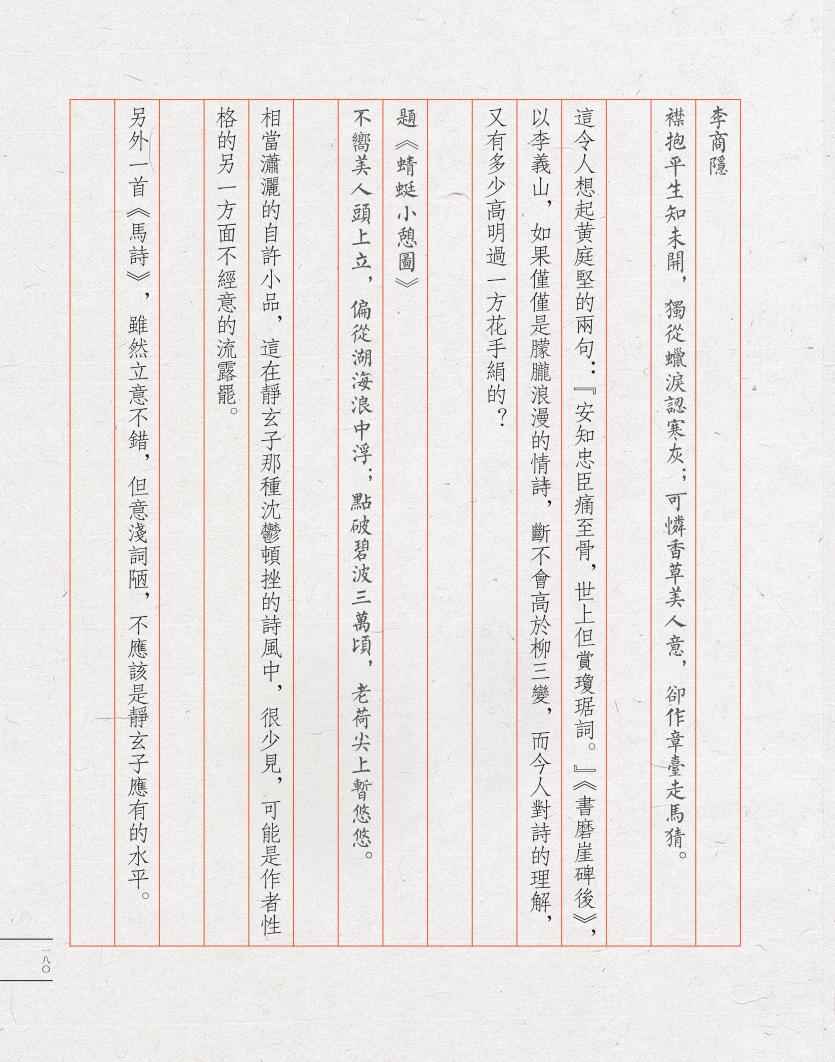 李商隱
襟抱平生知未開，獨從蠟淚認寒灰；可憐香草美人意，卻作章臺走馬猜。
這令人想起黃庭堅的兩句：『安知忠臣痛至骨，世上但賞瓊琚詞。』《書磨崖碑後》，
以李義山，如果僅僅是朦朧浪漫的情詩，斷不會高於柳三變，而今人對詩的理解，
又有多少高明過一方花手絹的？
題《蜻蜓小憩圖》
不嚮美人頭上立，偏從湖海浪中浮；點破碧波三萬頃，老荷尖上暫悠悠。
相當瀟灑的自許小品，這在靜玄子那種沈鬱頓挫的詩風中，很少見，可能是作者性
格的另一方面不經意的流露罷。
另外一首《馬詩》，雖然立意不錯，但意淺詞陋，不應該是靜玄子應有的水平。
一八〇